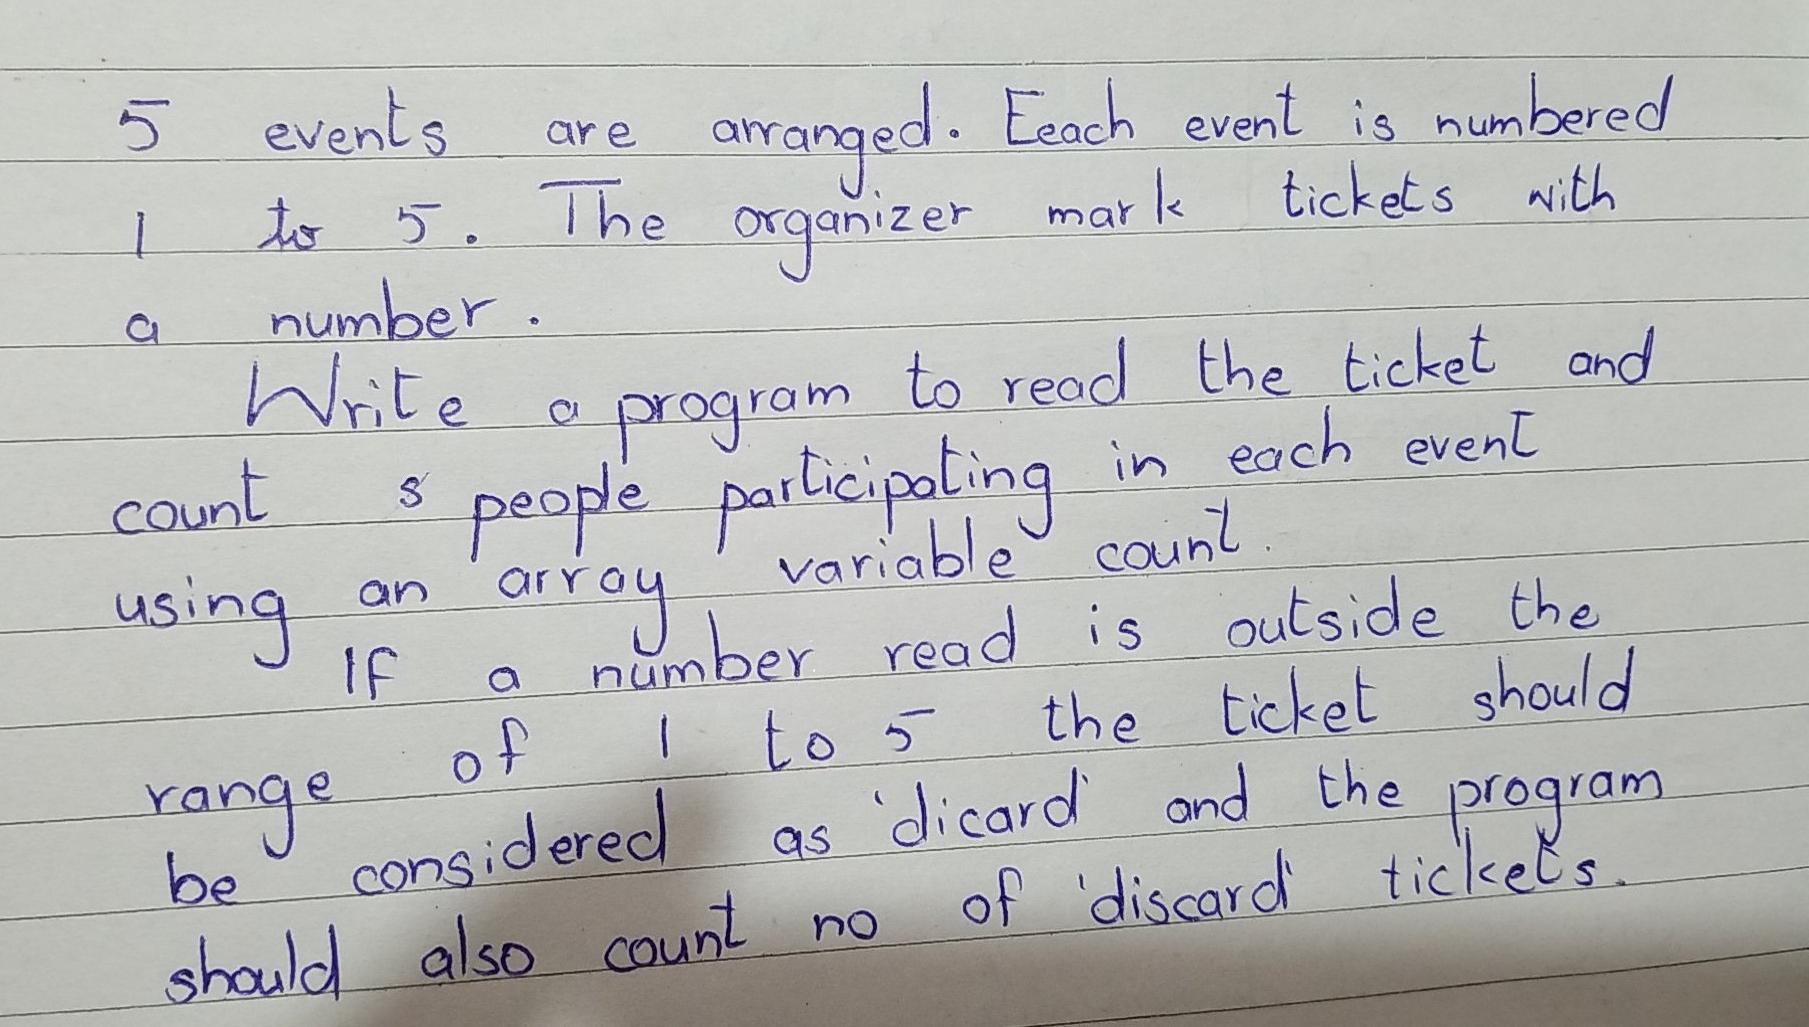 5 events are arranged. Eeach event is numbered
1 to 5. The organizer mark tickets with
a number.
Write a program to read the ticket and
count s people participating in each event
using an array variable count.
If a number read is outside the
range of 1 to 5 the ticket should
be considered as 'dicard' and the program
should also count no of 'discard' tickets.